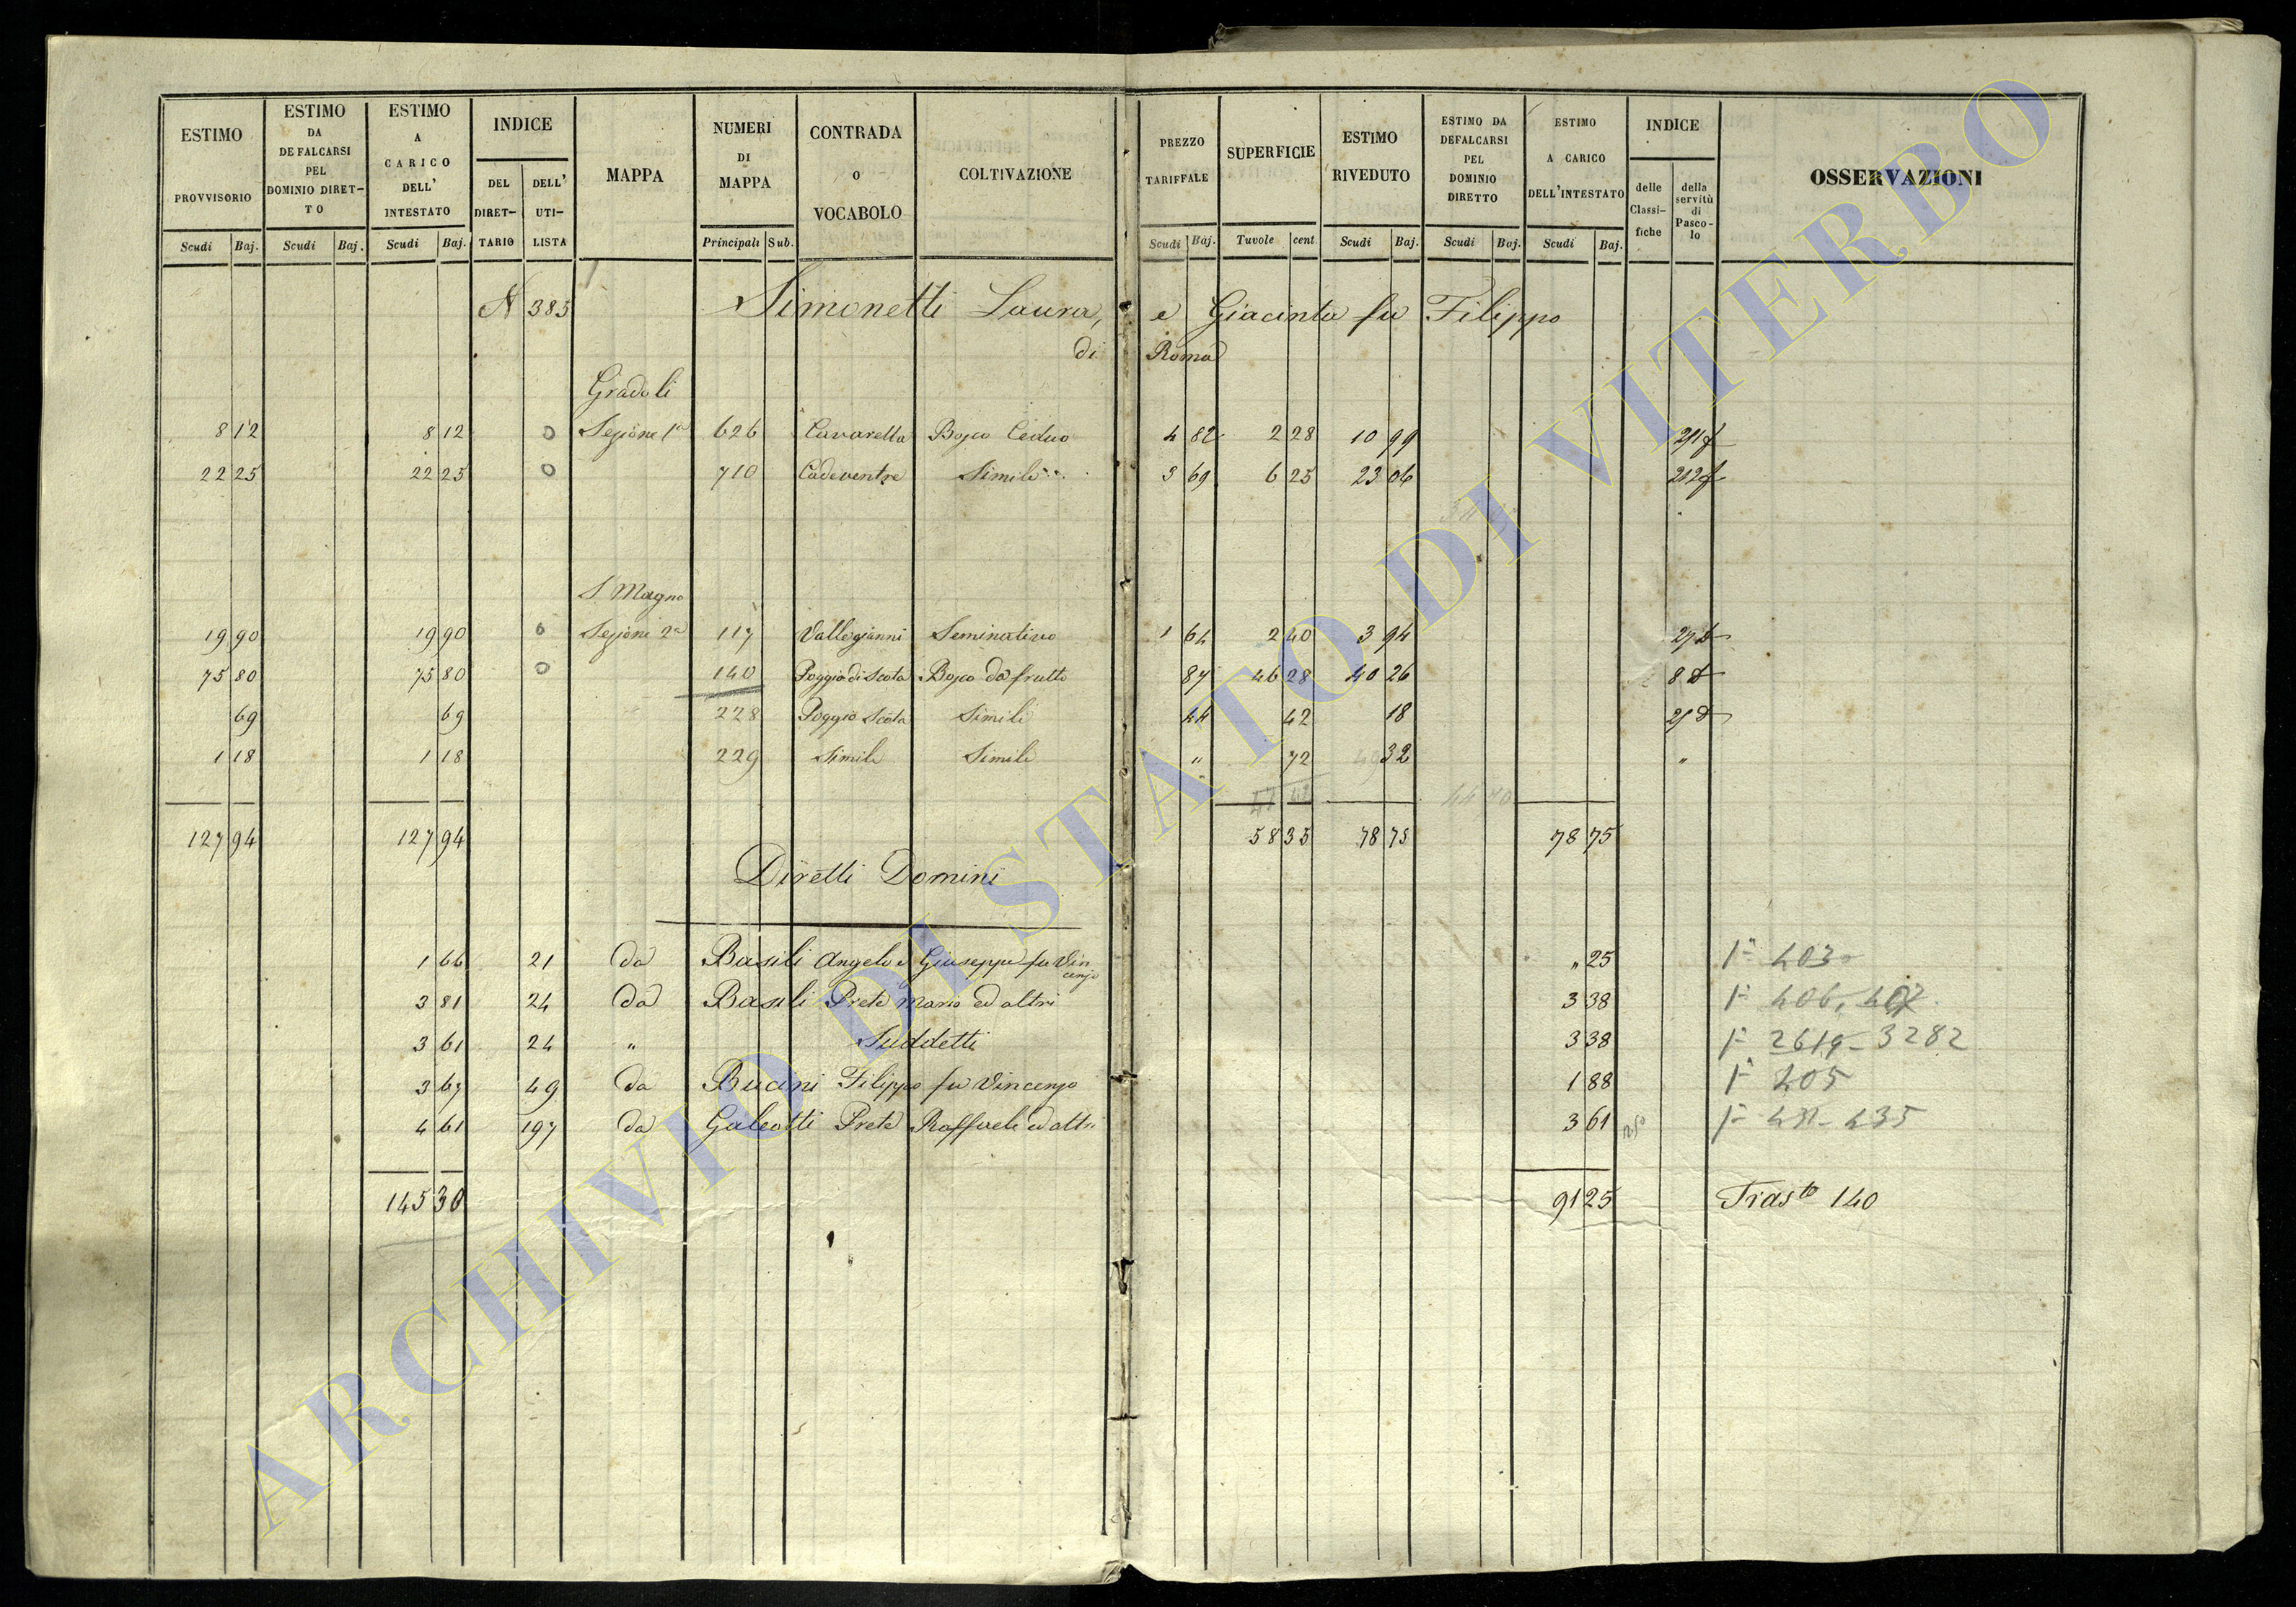 ESTIMO PROVVISORIO Scudi Baj.
ESTIMO DA DEFALCARSI PEL DOMINIO DIRET-TO Scudi Baj.
ESTIMO A CARICO DELL' INTESTATO Scudi Baj.
INDICE DEL DIRET-TARIO DELL' UTI-LISTA
MAPPA
NUMERI DI MAPPA Principali Sub.
CONTRADA O VOCABOLO
COLTIVAZIONE
PREZZO TARIFFALE Scudi Baj.
SUPERFICIE Tavole cent.
ESTIMO RIVEDUTO Scudi Baj.
ESTIMO DA DEFALCARSI PEL DOMINIO DIRETTO Scudi Baj.
ESTIMO A CARICO DELL'INTESTATO Scudi Baj.
INDICE delle Classi-fiche della servitù di Pasco-lo
OSSERVAZIONI
N 383 Simonetti Laura, e Giacinta fu Filippo
di Roma
Gradoli
8 12 8 12 0 Sezione 1a 626 Cavarella Bosco Ceduo 4 82 2 28 10 99
22 25 22 25 0 710 Cadeventre Simile 3 69 6 25 23 06 212
S Magno
19 90 19 90 0 Sezione 2a 117 Vallegianni Seminativo 1 64 2 40 3 94
75 80 75 80 0 140 Poggio di Scota Bosco da frutto 87 46 28 40 26
69 69 228 Poggio Scota Simile 44 42 18
1 18 1 18 229 Simile Simile " 72 32 "
44 70
127 94 127 94 58 35 78 75 78 75
Diretti Domini
1 66 21 da Basili Angelo e Giuseppe fu Vincenzo " 25 403
3 81 24 da Basili Prete Mario ed altri 3 38 406, 407
3 61 24 " Suddetti 3 38 2619 - 3282
3 67 49 da Bucini Filippo fu Vincenzo 1 88 205
4 61 197 da Galeotti Prete Raffaele ed altri 3 61 435
145 30 91 25 Trasto 140
ARCHIVIO DI STATO DI VITERBO